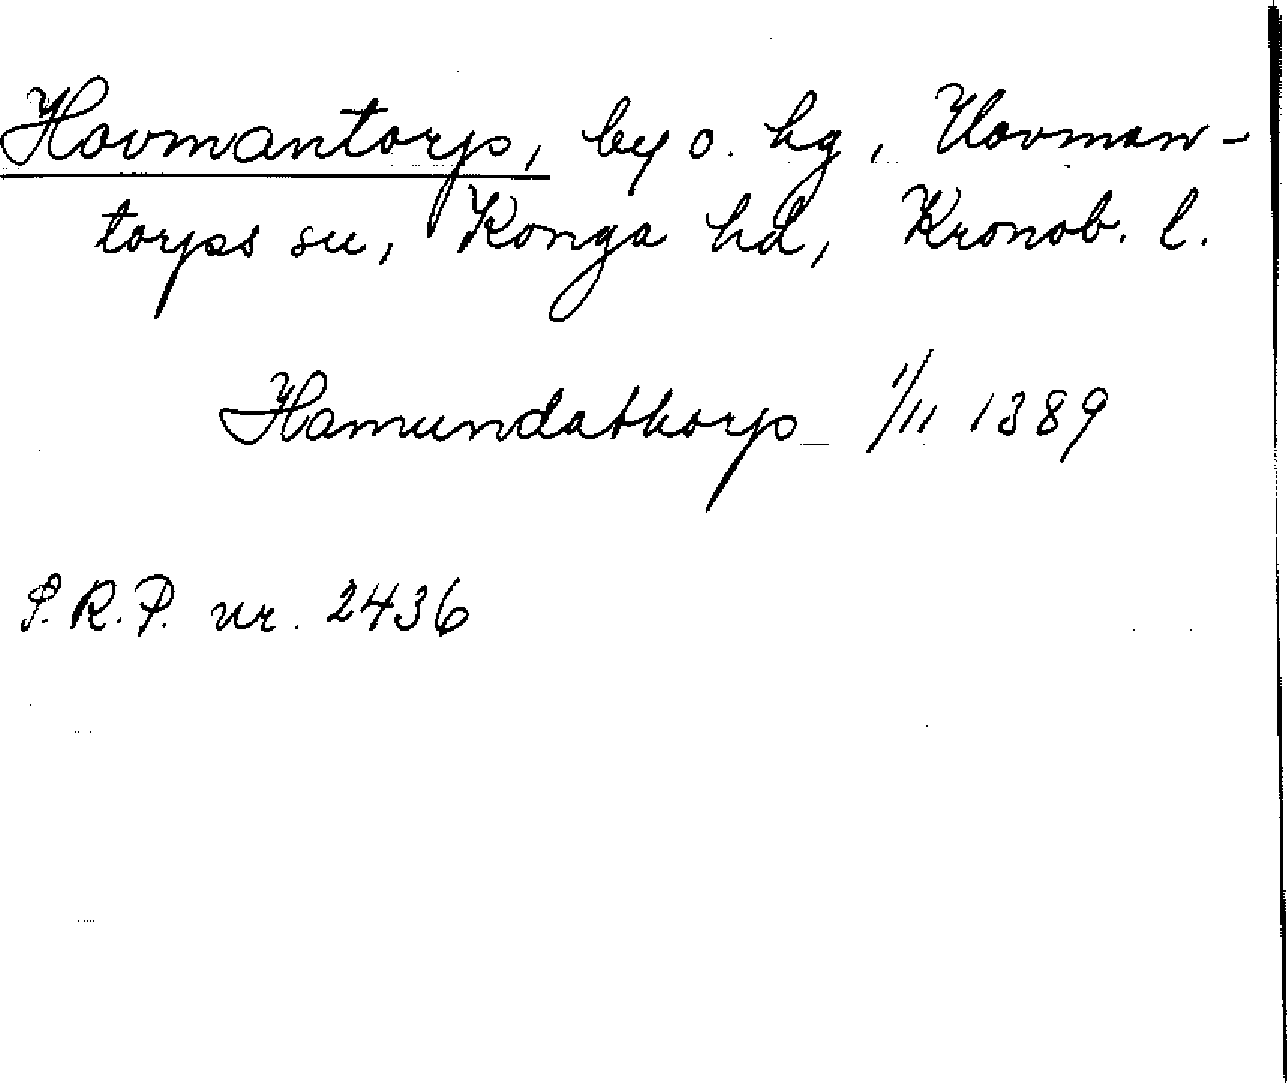 Hovmantorp, by o. hg, Hovman-
torps sn, Konga hd, Kronob. l.
Hamundathorp 1/11 1389
S.R.P. nr. 2436